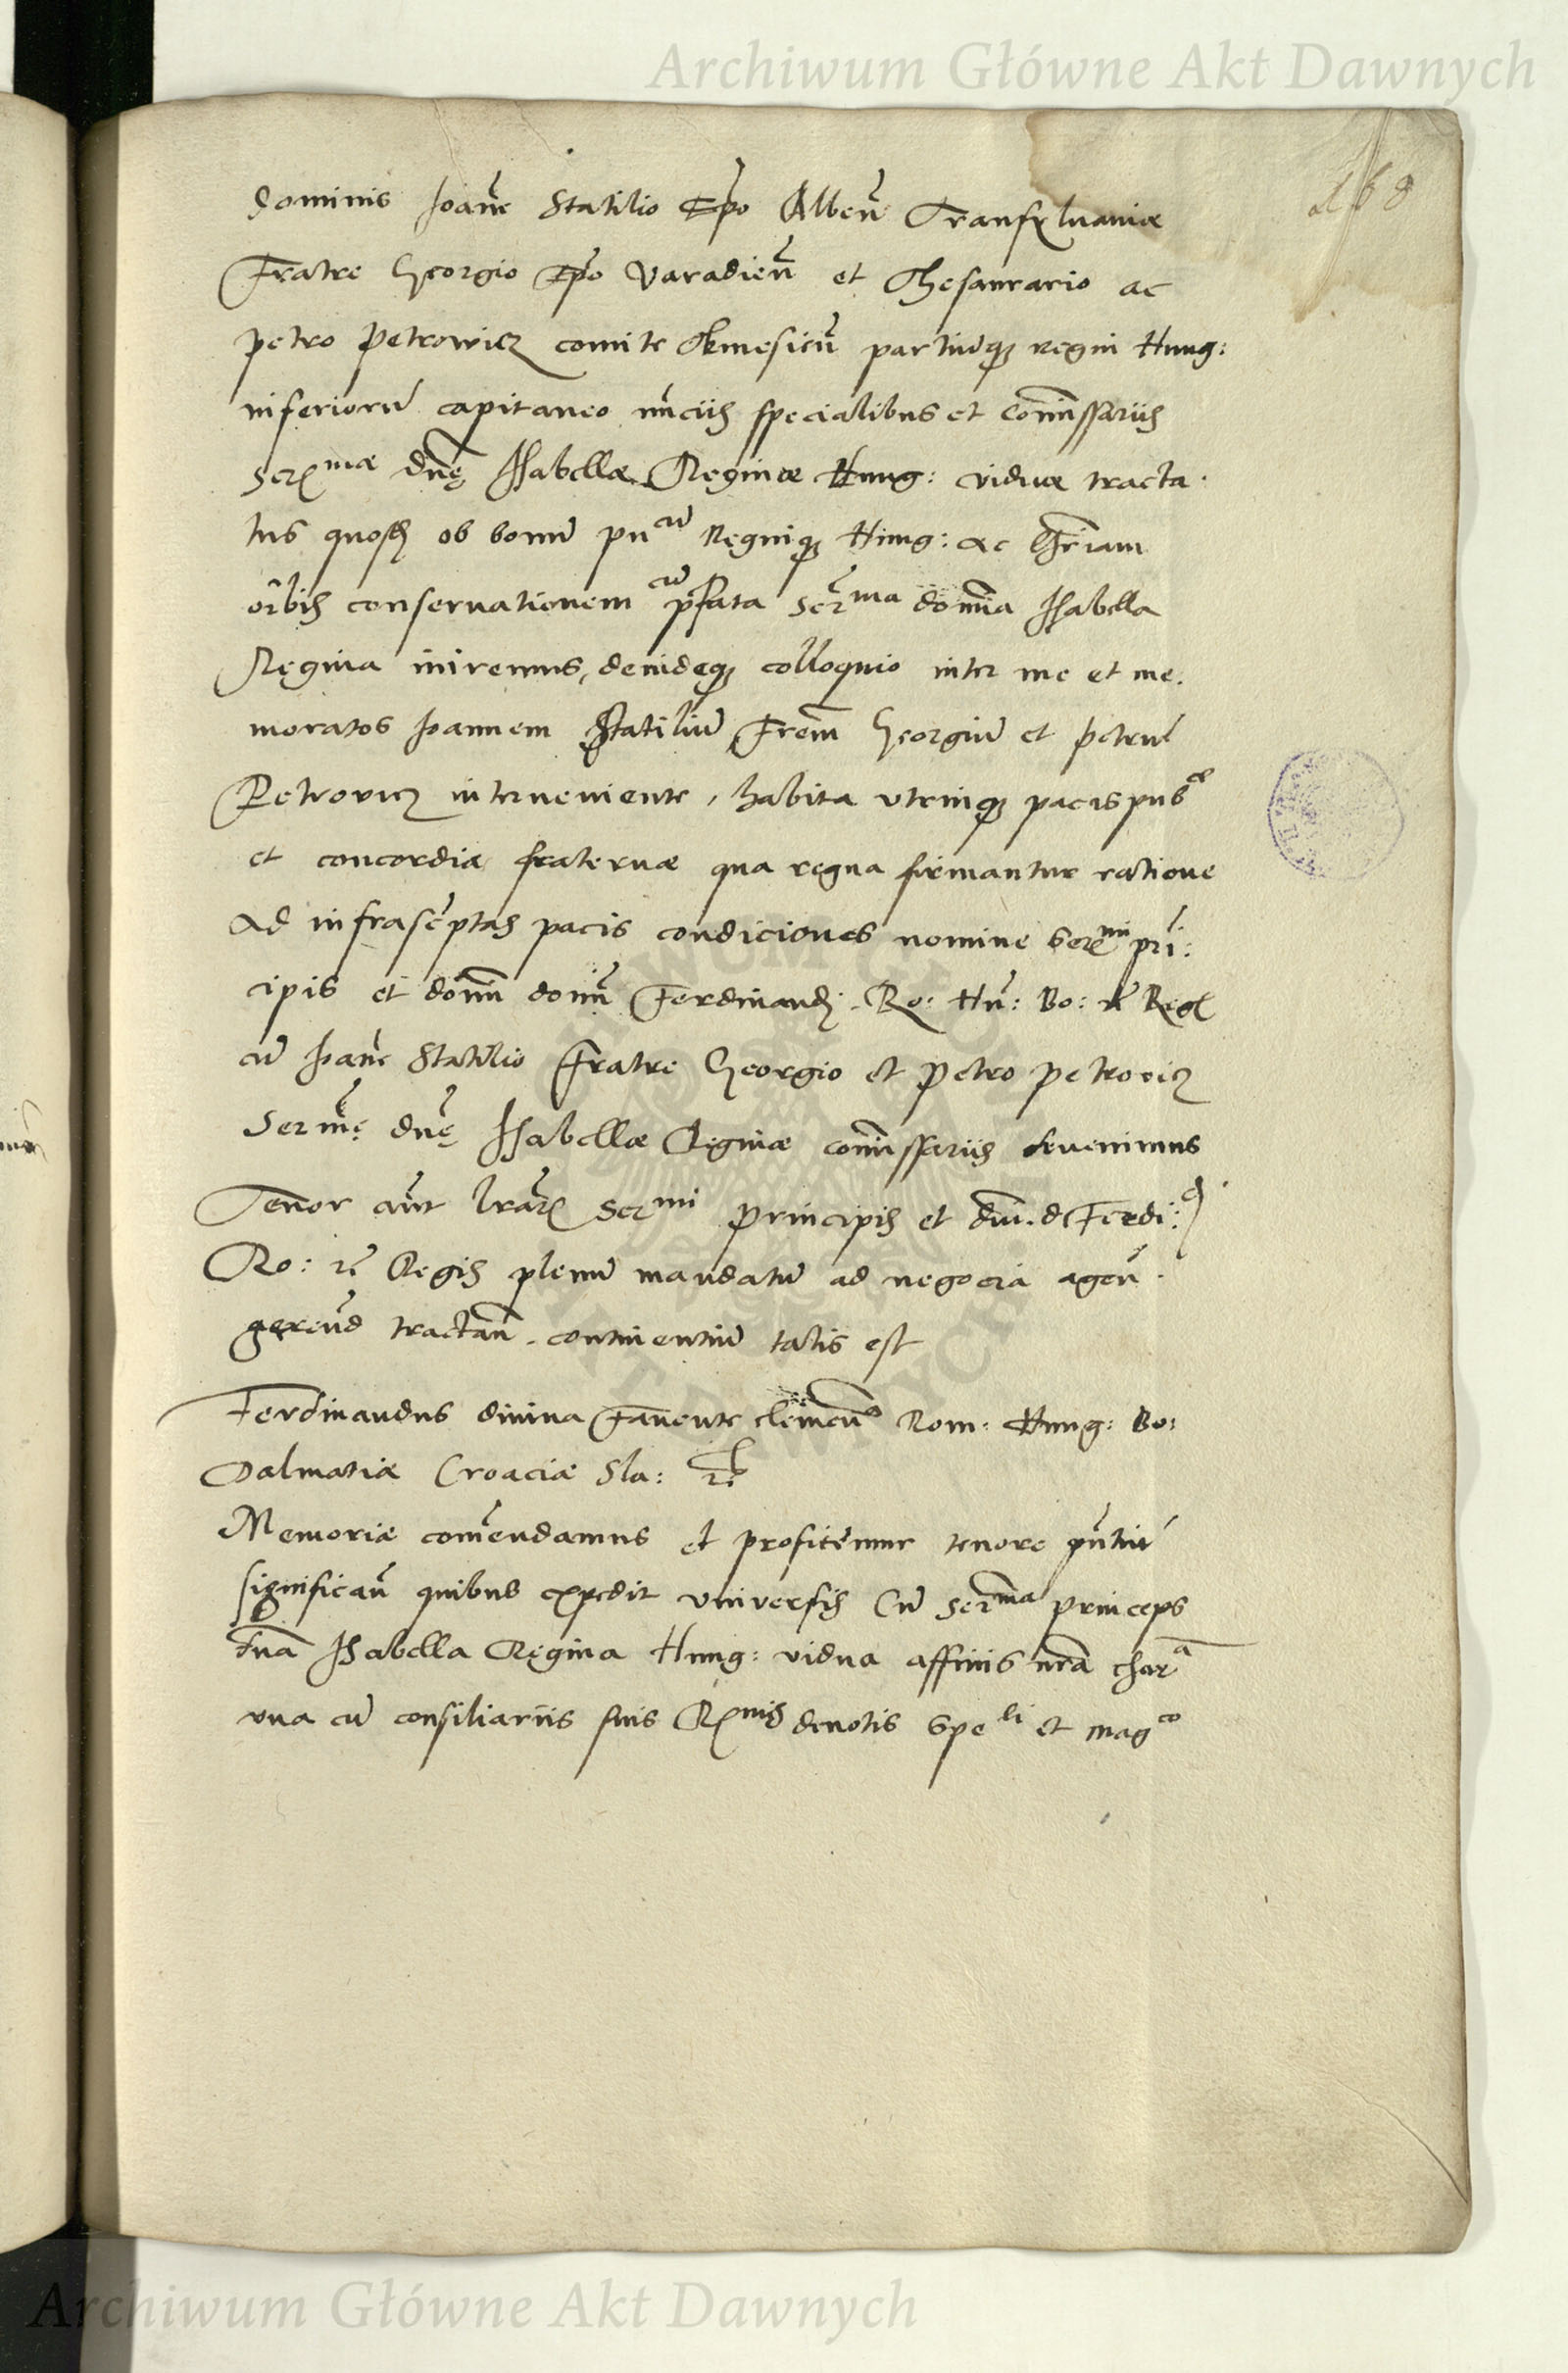 Archiwum Główne Akt Dawnych
168
Dominis Joan̄e Statilio Ep̄o Albeñ Transylvaniæ
Fratre Georgio Ep̄o Varadieñ et Thesaurario ac
Petro Petrowicz comite Themesieñ partiūq; regni Hung:
inferiorū capitaneo nūciis specialibus et Com̄issariis
Ser^mæ dn̄ę Isabellæ Reginæ Hung: viduæ tracta-
tus quosd ob bonū pu^cū Regniq; Hung: ac C̄hr̄iani
orbis conservationem cū p̄fata Ser^ma dom̄a Isabella
Regina iniremus, deindeq; colloquio inter me et me-
moratos Joannem Statiliū Fr̄em Georgiū et Petrū
Petrovicz interveniente, habita utrinq; pacis pub^cæ
et concordiæ fraternæ qua regna firmantur ratione
ad infrasc̄ptas pacis condiciones nomine Ser^mi prī-
cipis et dom̄ dom̄ Ferdinandi Ro: Hū: Bo: &c Regs
cū Joan̄e Statilio Fratre Georgio et Petro Petrovicz
Ser^mę dn̄ę Isabellæ Reginæ com̄issariis devenimus
Tenor aūt lr̄arū Ser^mi Principis et dn̄i. d Ferdi:
Ro: &c Regis plenū mandatū ad negocia ageñ.
gerend tractañ. continentiū talis est
Ferdinandus divina favente clemen^a Rom: Hung: Bo:
Dalmatiæ Croaciæ Sla: &c
Memoriæ com̄endamus et profitemur tenore pn̄tiū
significañ quibus expedit universis Cū Ser^ma princeps
dn̄a Isabella Regina Hung: vidua affinis nr̄a char^a
una cū consiliariis suis R^mis devotis Spe^li et Mag^co
Archiwum Główne Akt Dawnych